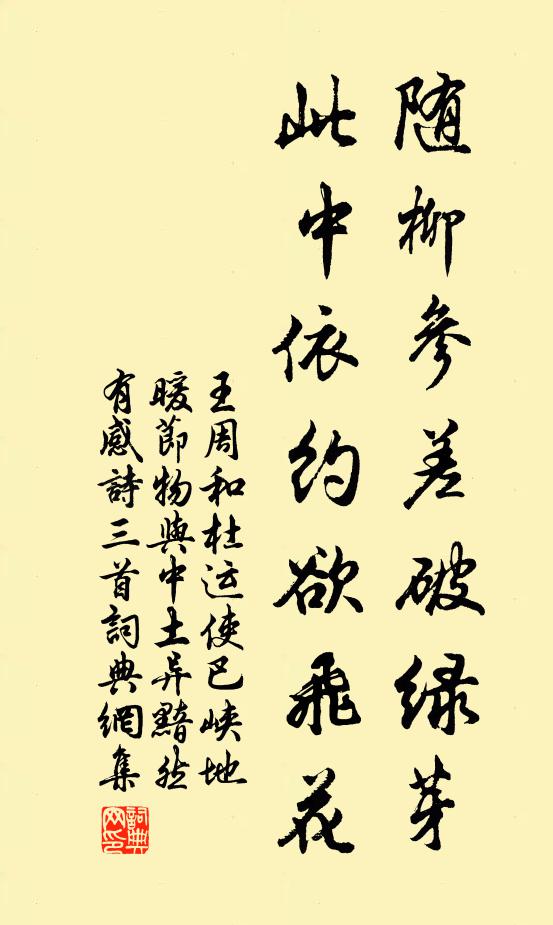 随柳參差破緑芽
此中依約欲飛花
王周和杜运使巴峡地
暖節物與中土异黯然
有感詩三首詞典網集
詞典
网印